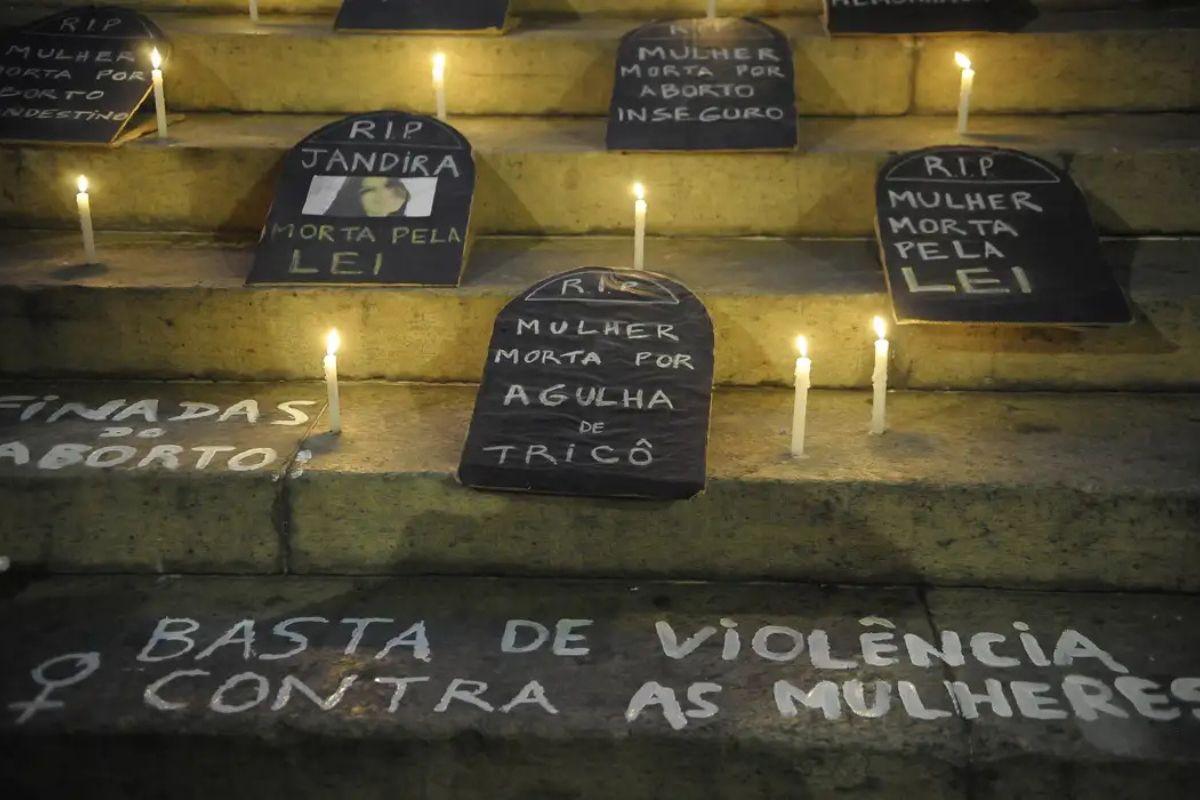 R I P
MULHER
MORTA POR
R I P
MULHER
MORTA POR
ABORTO
INSEGURO
R I P.
JANDIRA
MORTA PELA
LEI
R.I.P
MULHER
MORTA
PELA
LEI
R.I.P
MULHER
MORTA POR
AGULHA
DE
TRICÔ
FINADAS
DO
ABORTO.
♀ BASTA DE VIOLÊNCIA
CONTRA AS MULHERES